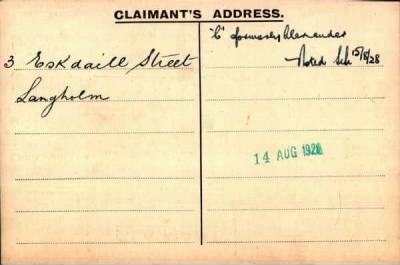 CLAIMANT'S ADDRESS.
3 Eskdaill Street
Langholm
"C" formerly Alexander
Noted 15/8/28
14 AUG 1928